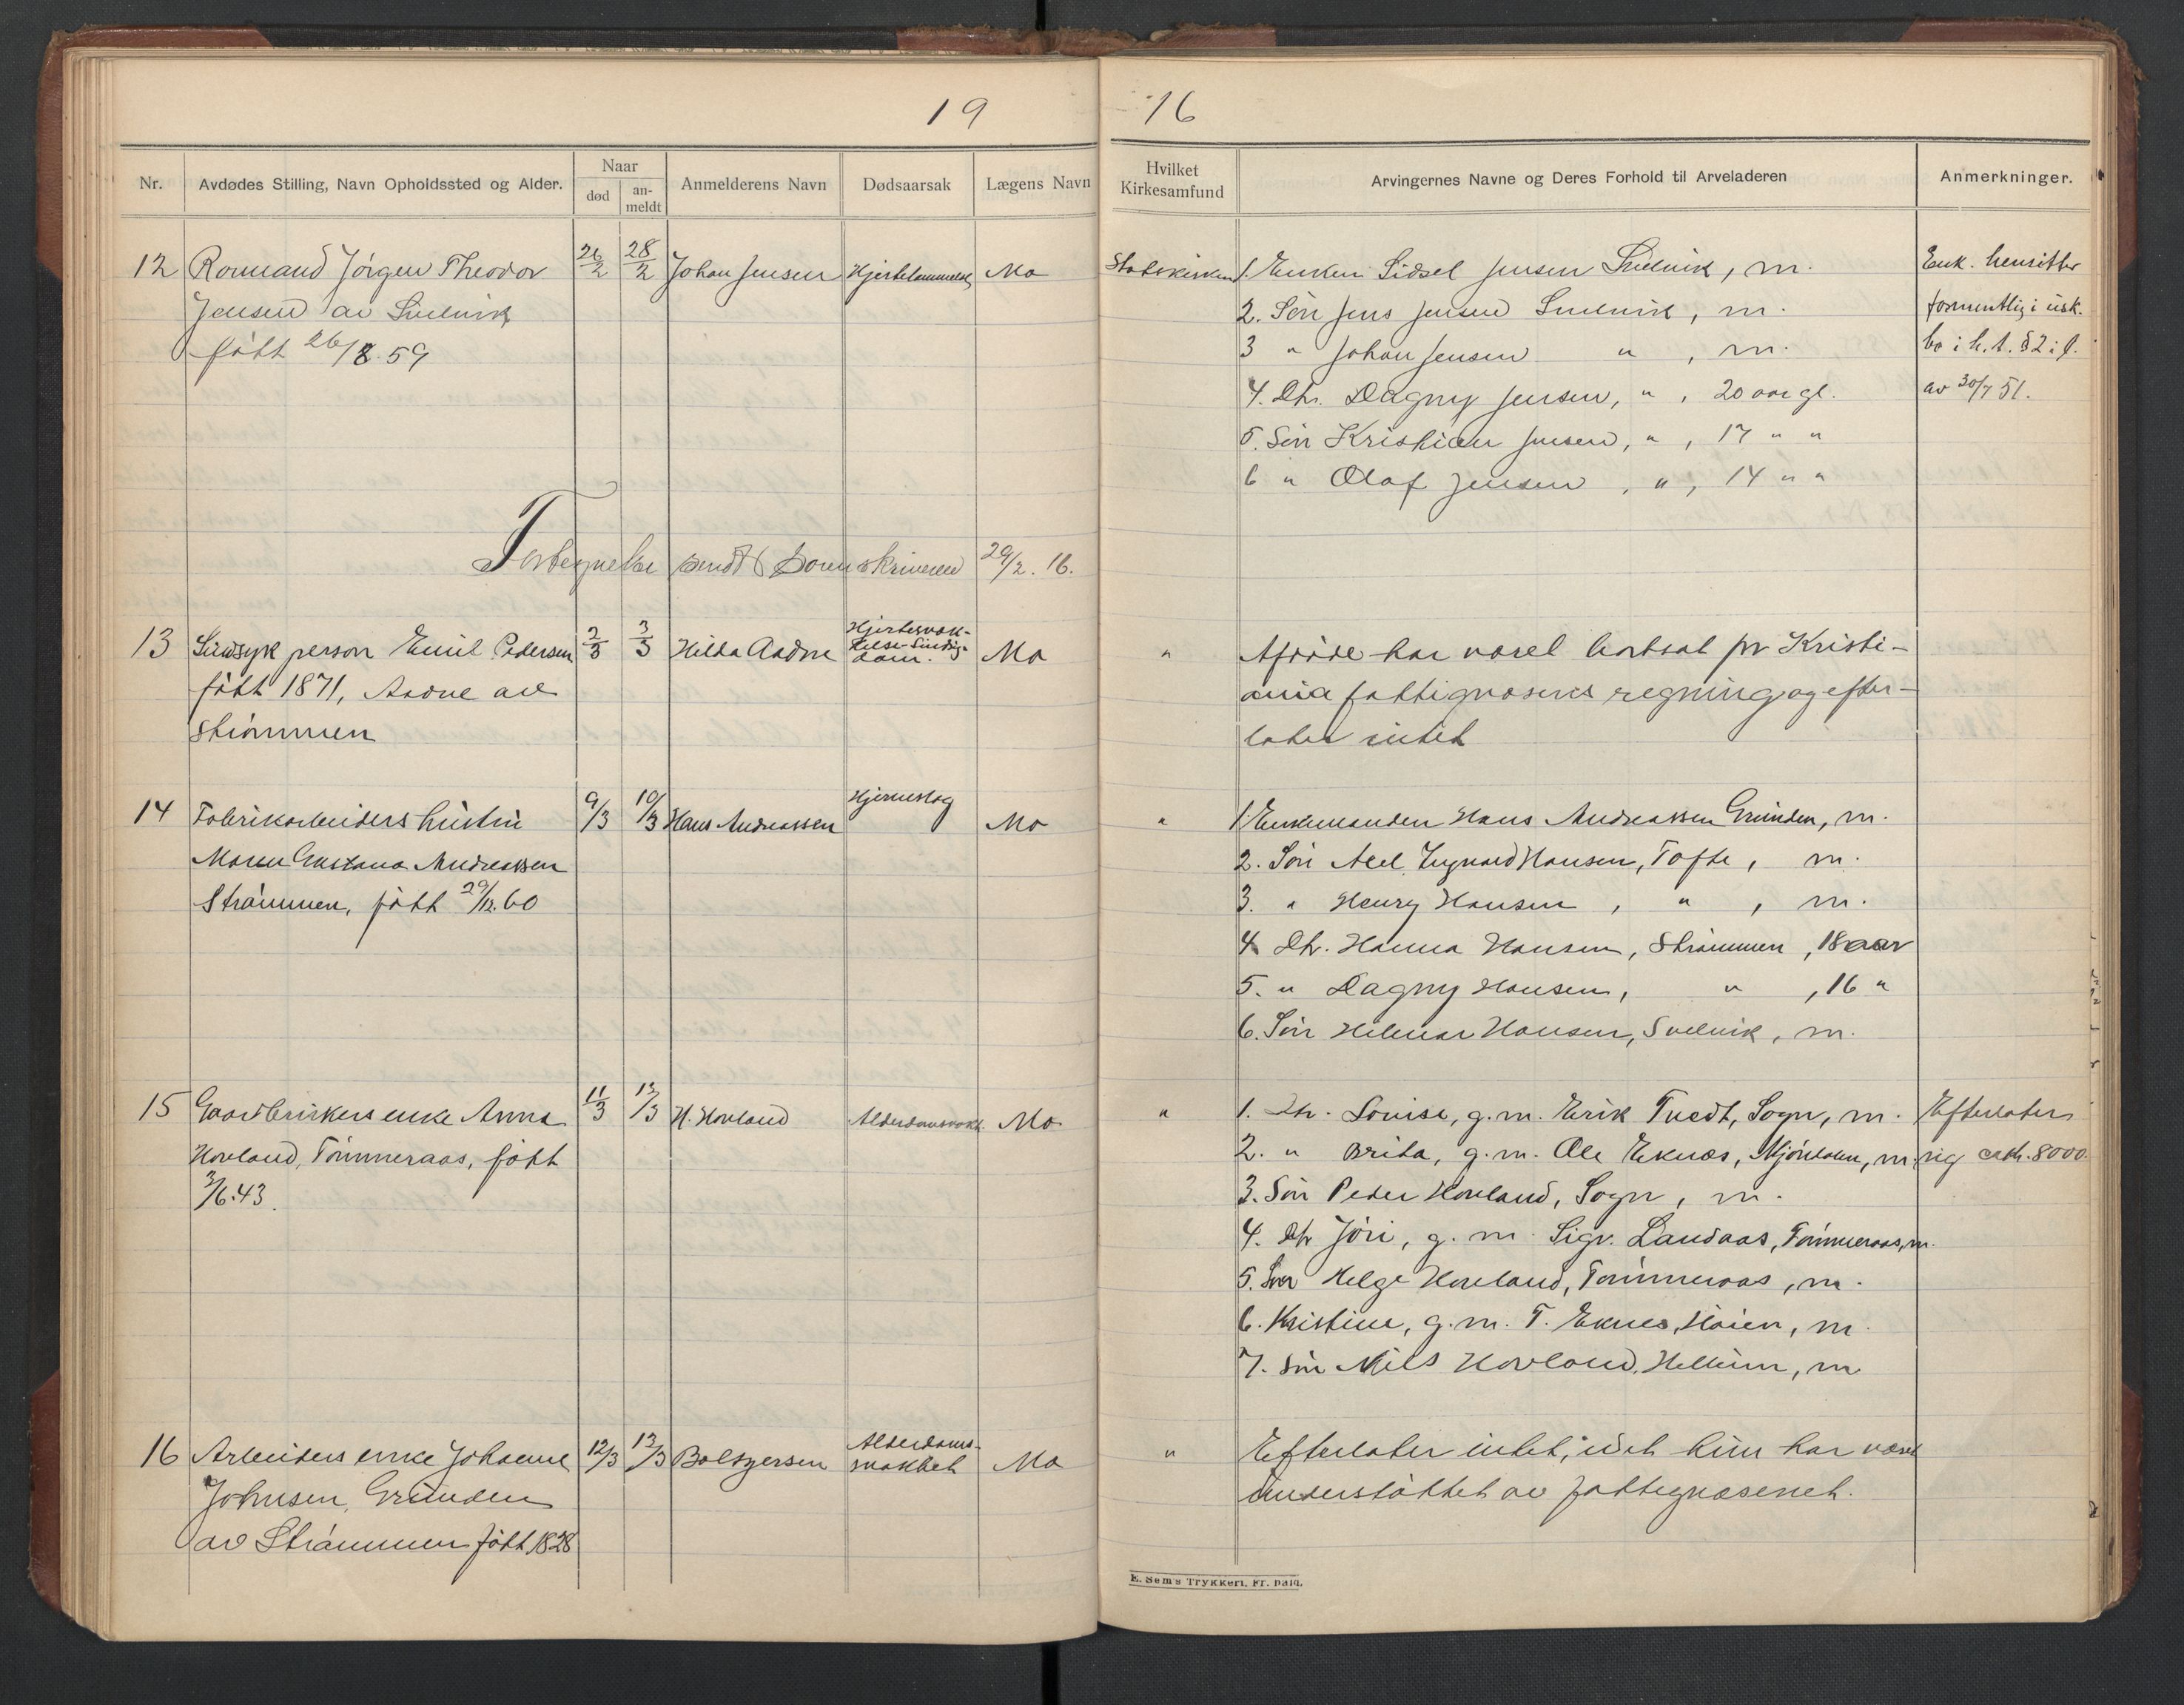 19
16
Nr.
Avdødes Stilling, Navn Opholdssted og Alder.
Naar
død
an-
meldt
Anmelderens Navn
Dødsaarsak
Lægens Navn
Hvilket
Kirkesamfund
Arvingernes Navne og Deres Forhold til Arveladeren
Anmerkninger.
12 Jørgen Theodor 26/2 28/2 Johan Jensen Hjertelammelse Mo
Jensen av Svelvik
født 26/8.59
Statskirken 1. Enken Sidsel Jensen Svelvik, m.
2. Søn Jens Jensen Svelvik, m.
3 " Johan Jensen " , m.
4. Dtr. Dagny Jensen, " , 20 aar gl.
5. Søn Kristian Jensen, " , 17 " "
6 " Olaf Jensen , " , 14 " "
Enk. hensitter
formentlig i usk.
bo i h. t. § 2 i l.
av 30/7 51.
Fortegnelse sendt Sorenskriveren 29/2. 16.
13 Sindsyk person Emil Pedersen 2/3 3/3 Hilda Aadne Mo
født 1871, Aadne av
Strømmen
" Afdøde har været bortsat pr Kristi-
ania fattigvæsens regning og efter-
later intet
14 Fabrikarbeiders hustru 9/3 10/3 Hans Andreassen Hjerneslag Mo
Maren Gustava Andreassen
Strømmen, født 29/12.60
" 1. Enkemanden Hans Andreassen Grunden, m.
2. Søn Hansen, Tofte, m.
3. " Henry Hansen , " , m.
4 Dtr. Hanna Hansen, Strømmen, 18 aar
5. " Dagny Hansen, " , 16 "
6. Søn Hilmar Hansen, Svelvik, m.
15 Gaardbrukers enke Anna 11/3 13/3 H. Hovland Mo
Hovland, Tømmeraas, født
3/6.43.
" 1. Dtr. Louise, g. m. Erik Tvedt, Sogn, m.
2. " Brita, g. m. Ole Eknæs, Mjøndalen, m.
3. Søn Peder Hovland, Sogn, m.
4. Dtr Jøri, g. m. Sigv. Landaas, Tømmeraas, m.
5. Søn Helge Hovland, Tømmeraas, m.
6. Kristine, g. m. T. Eknes, Høien, m.
7. Søn Nils Hovland, Hellum, m
Efterlater
sig ca kr. 8000.
16 Arbeiders enke Johanne 12/3 13/3 Alderdoms- Mo
svakhet
Johnsen, Grunden
av Strømmen født 1828
" Efterlater intet, idet hun har været
understøttet av fattigvæsenet.
E. Sem's Trykkeri, Fr. hald.